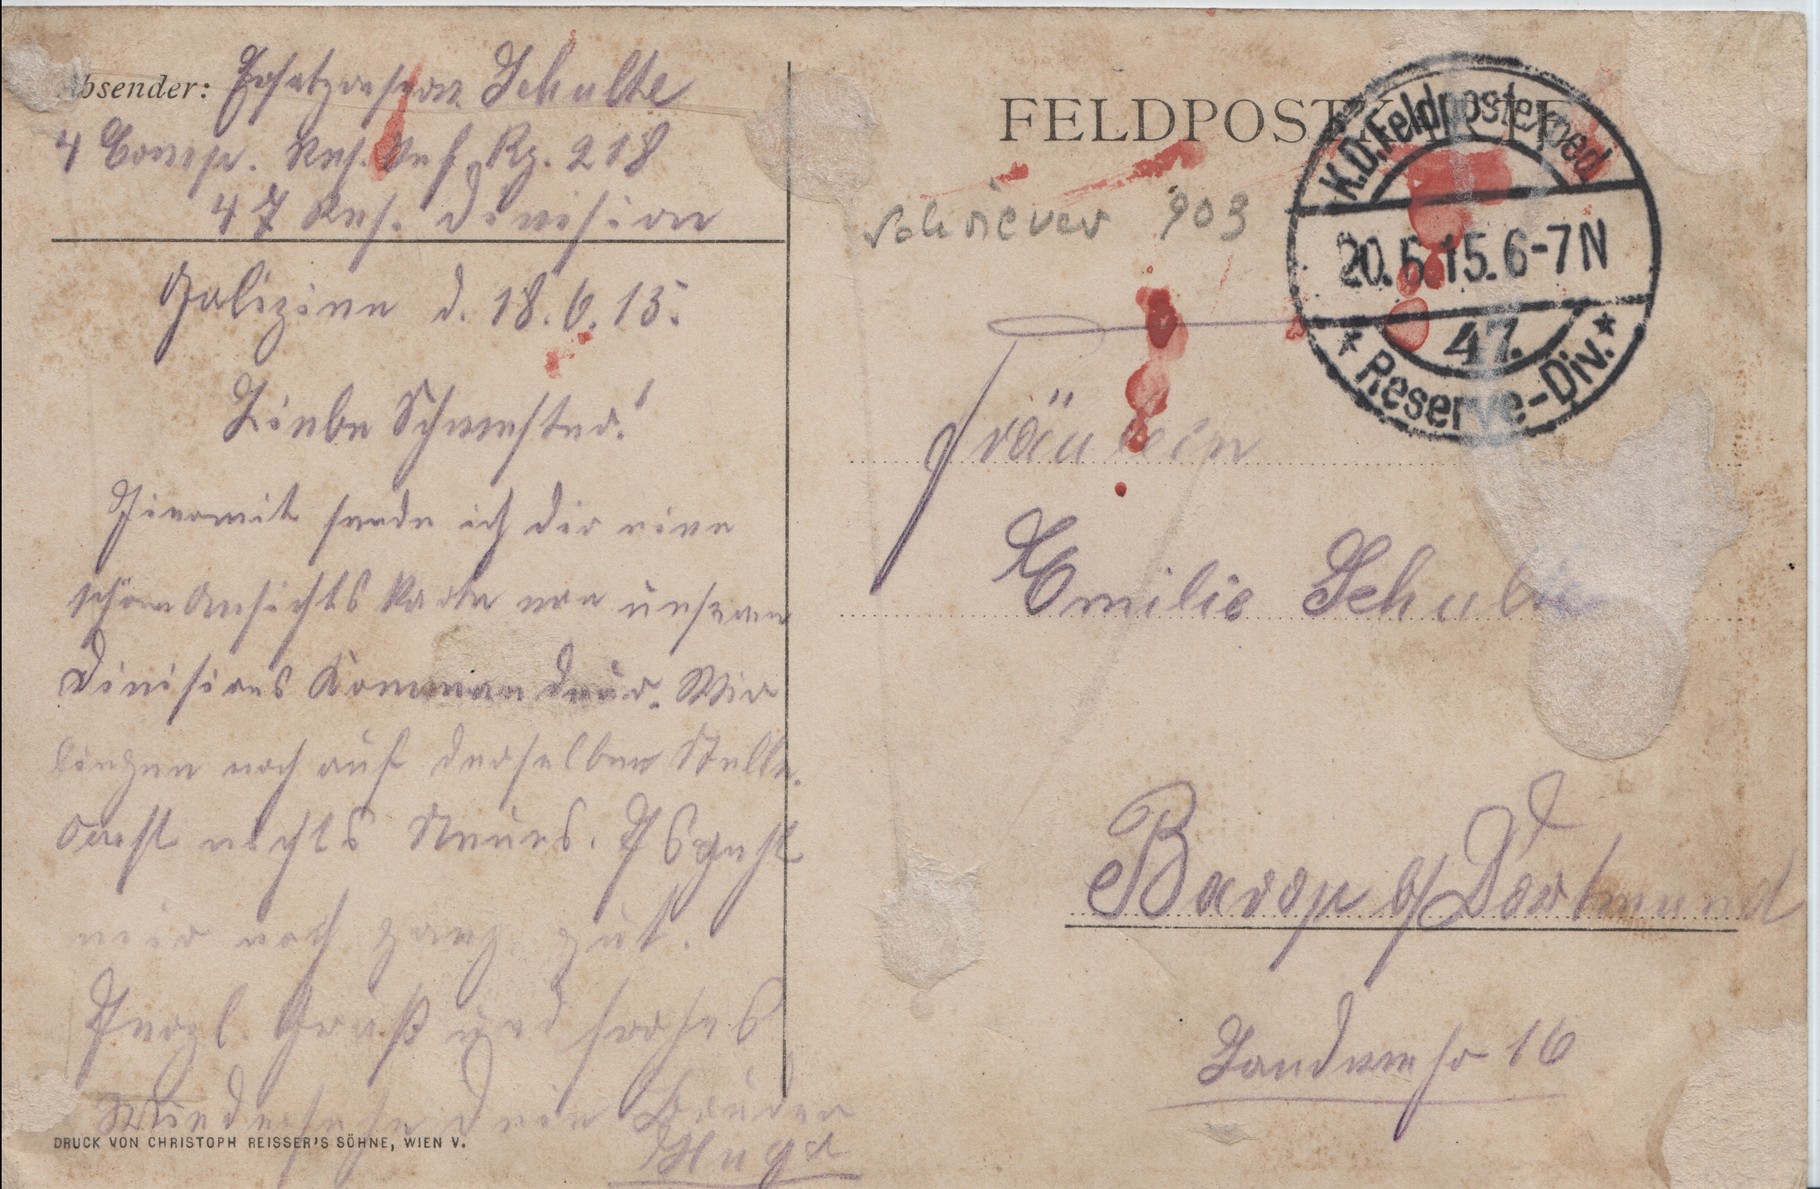 Absender: Ersatzreserv Schulte
4 Comp. Res. Inf. Rg. 218
47 Res. Division
Galizien d. 18.6.15.
Liebe Schwester!
Hiermit sende ich dir eine
schöne Ansichts Karte von unseren
Divisions Kommandeur. Wir
liegen noch auf derselben Stelle.
sonst nichts Neues. Es geht
mir noch ganz gut.
Herzl. Gruß und frohes
Wiedersehn dein Bruder
Hugo
DRUCK VON CHRISTOPH REISSER'S SÖHNE, WIEN V.
FELDPOST
K.D. Feldpostexped.
20.6.15. 6-7N
47.
* Reserve-Div. *
903
Fräulein
Emilie Schulte
Barop b/Dortmund
Landwehr 16